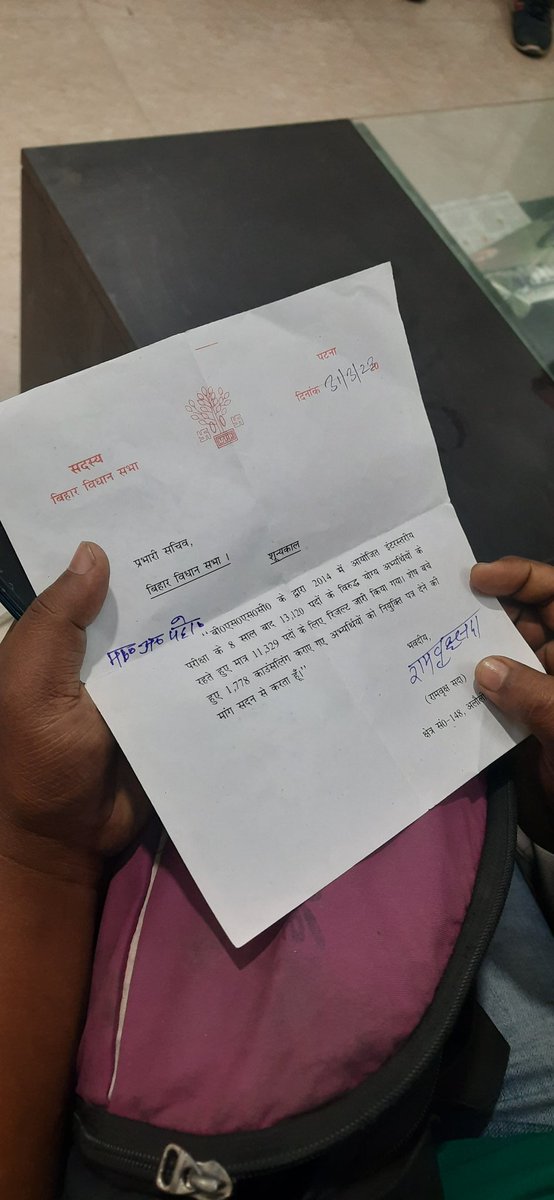 पटना
दिनांक 31/3/23 20
सदस्य
बिहार विधान सभा
प्रभारी सचिव,
बिहार विधान सभा ।
शून्यकाल
"बी0एस0एस0सी0 के द्वारा 2014 में आयोजित इंटरस्तरीय
परीक्षा के 8 साल बाद 13,120 पदों के विरूद्ध योग्य अभ्यर्थियों के
रहते हुए मात्र 11,329 पदों के लिए रिजल्ट जारी किया गया। शेष बचे
हुए 1,778 काउंसलिंग कराए गए अभ्यर्थियों को नियुक्ति पत्र देने की
मांग सदन से करता हूँ।"
भवदीय,
रामवृक्ष सदा
(रामवृक्ष सदा)
क्षेत्र सं0-148, अलौली